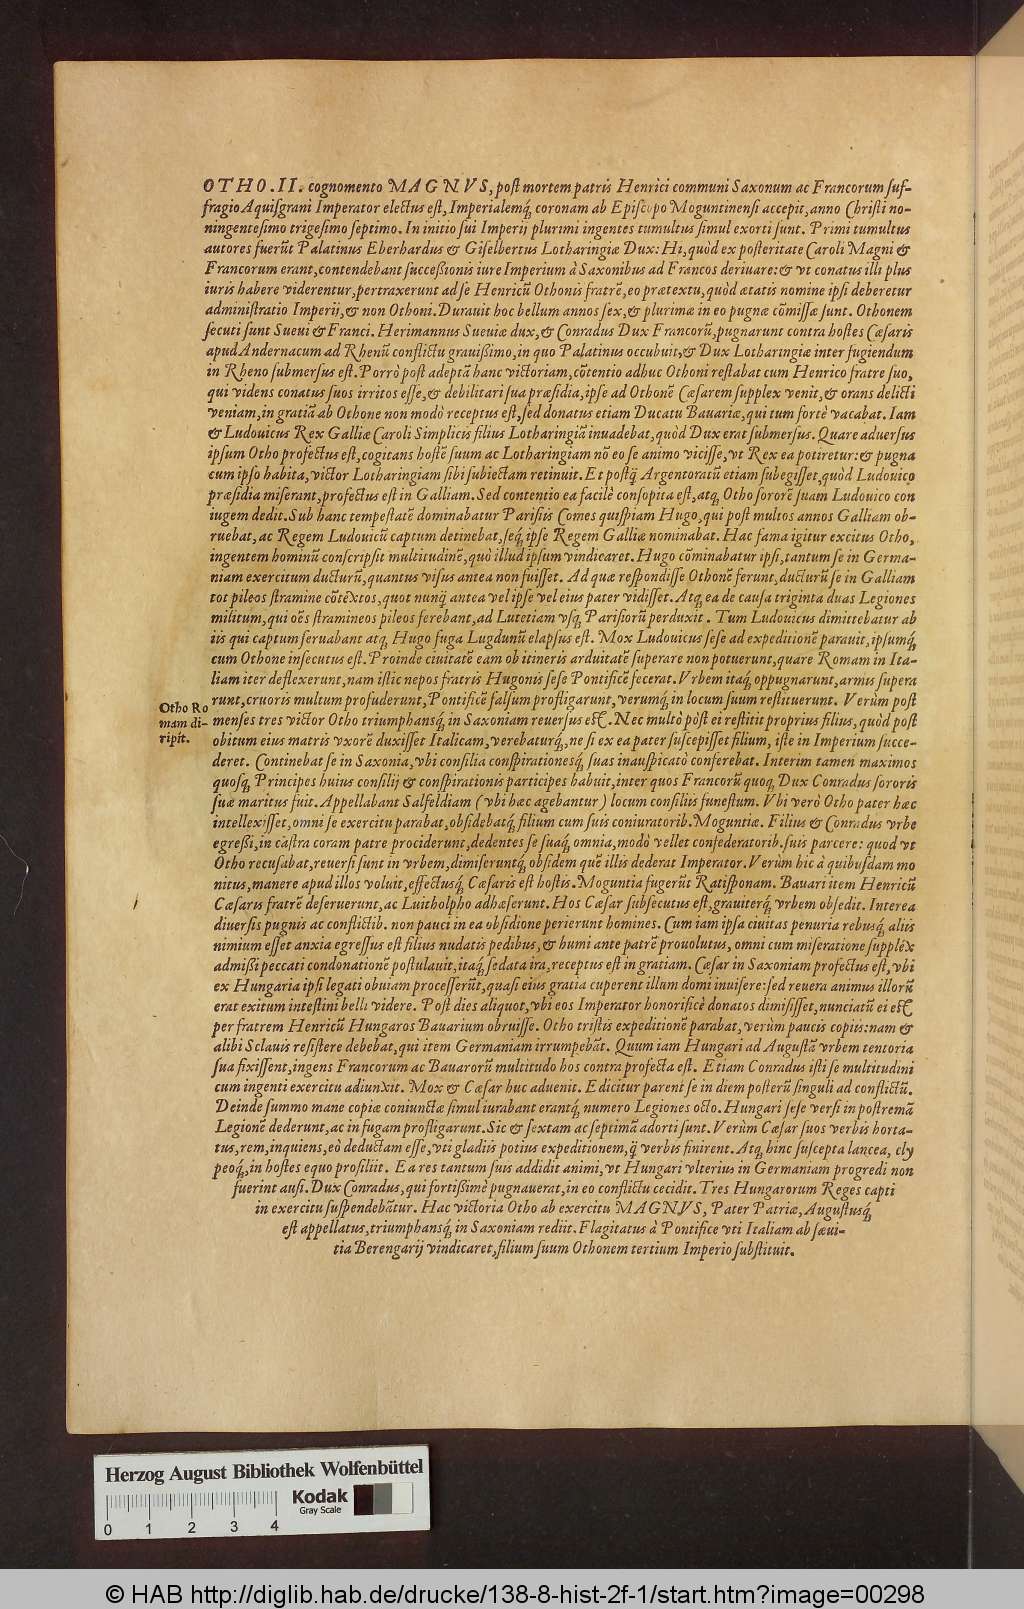 OTHO. II. cognomento MAGNVS, post mortem patris Henrici communi Saxonum ac Francorum suf-
fragio Aquisgrani Imperator electus est, Imperialemq́; coronam ab Episcopo Moguntinensi accepit, anno Christi no-
ningentesimo trigesimo septimo. In initio sui Imperij plurimi ingentes tumultus simul exorti sunt. Primi tumultus
autores fuerũt Palatinus Eberhardus & Giselbertus Lotharingiæ Dux: Hi, quòd ex posteritate Caroli Magni &
Francorum erant, contendebant successionis iure Imperium à Saxonibus ad Francos deriuare: & vt conatus illi plus
iuris habere viderentur, pertraxerunt ad se Henricũ Othonis fratrẽ, eo prætextu, quòd ætatis nomine ipsi deberetur
administratio Imperij, & non Othoni. Durauit hoc bellum annos sex, & plurimæ in eo pugnæ cõmissæ sunt. Othonem
secuti sunt Sueui & Franci. Herimannus Sueuiæ dux, & Conradus Dux Francorũ, pugnarunt contra hostes Cæsaris
apud Andernacum ad Rhenũ conflictu grauißimo, in quo Palatinus occubuit, & Dux Lotharingiæ inter fugiendum
in Rheno submersus est. Porrò post adeptã hanc victoriam, cõtentio adhuc Othoni restabat cum Henrico fratre suo,
qui videns conatus suos irritos esse, & debilitari sua præsidia, ipse ad Othonẽ Cæsarem supplex venit, & orans delicti
veniam, in gratiã ab Othone non modò receptus est, sed donatus etiam Ducatu Bauariæ, qui tum fortè vacabat. Iam
& Ludouicus Rex Galliæ Caroli Simplicis filius Lotharingiã inuadebat, quòd Dux erat submersus. Quare aduersus
ipsum Otho profectus est, cogitans hostẽ suum ac Lotharingiam nõ eo se animo vicisse, vt Rex ea potiretur: & pugna
cum ipso habita, victor Lotharingiam sibi subiectam retinuit. Et postq̃ Argentoratũ etiam subegisset, quòd Ludouico
præsidia miserant, profectus est in Galliam. Sed contentio ea facilè consopita est, atq; Otho sororẽ suam Ludouico con
iugem dedit. Sub hanc tempestatẽ dominabatur Parisiis Comes quispiam Hugo, qui post multos annos Galliam ob-
ruebat, ac Regem Ludouicũ captum detinebat, seq́; ipse Regem Galliæ nominabat. Hac fama igitur excitus Otho,
ingentem hominũ conscripsit multitudinẽ, quò illud ipsum vindicaret. Hugo cõminabatur ipsi, tantum se in Germa-
niam exercitum ducturũ, quantus visus antea non fuisset. Ad quæ respondisse Othonẽ ferunt, ducturũ se in Galliam
tot pileos stramine cõtextos, quot nunq̃ antea vel ipse vel eius pater vidisset. Atq; ea de causa triginta duas Legiones
militum, qui oẽs stramineos pileos ferebant, ad Lutetiam vsq; Parisiorũ perduxit. Tum Ludouicus dimittebatur ab
iis qui captum seruabant atq; Hugo fuga Lugdunũ elapsus est. Mox Ludouicus sese ad expeditionẽ parauit, ipsumq́;
cum Othone insecutus est. Proinde ciuitatẽ eam ob itineris arduitatẽ superare non potuerunt, quare Romam in Ita-
liam iter deflexerunt, nam istic nepos fratris Hugonis sese Pontificẽ fecerat. Vrbem itaq; oppugnarunt, armis supera
runt, cruoris multum profuderunt, Pontificẽ falsum profligarunt, verumq; in locum suum restituerunt. Verùm post
Otho Ro
mam di-
ripit.
menses tres victor Otho triumphansq́; in Saxoniam reuersus est. Nec multò pòst ei restitit proprius filius, quòd post
obitum eius matris vxorẽ duxisset Italicam, verebaturq́; ne si ex ea pater suscepisset filium, iste in Imperium succe-
deret. Continebat se in Saxonia, vbi consilia conspirationesq́; suas inauspicatò conferebat. Interim tamen maximos
quosq; Principes huius consilij & conspirationis participes habuit, inter quos Francorũ quoq; Dux Conradus sororis
suæ maritus fuit. Appellabant Salfeldiam (vbi hæc agebantur) locum consiliis funestum. Vbi verò Otho pater hæc
intellexisset, omni se exercitu parabat, obsidebatq́; filium cum suis coniuratorib. Moguntiæ. Filius & Conradus vrbe
egreßi, in castra coram patre prociderunt, dedentes se suaq́; omnia, modò vellet confederatorib. suis parcere: quod vt
Otho recusabat, reuersi sunt in vrbem, dimiseruntq́; obsidem quẽ illis dederat Imperator. Verùm hic à quibusdam mo
nitus, manere apud illos voluit, effectusq́; Cæsaris est hostis. Moguntia fugerũt Ratisponam. Bauari item Henricũ
Cæsaris fratrẽ deseruerunt, ac Luitholpho adhæserunt. Hos Cæsar subsecutus est, grauiterq́; vrbem obsedit. Interea
diuersis pugnis ac conflictib. non pauci in ea obsidione perierunt homines. Cum iam ipsa ciuitas penuria rebusq́; aliis
nimium esset anxia egressus est filius nudatis pedibus, & humi ante patrẽ prouolutus, omni cum miseratione supplex
admißi peccati condonationẽ postulauit, itaq́; sedata ira, receptus est in gratiam. Cæsar in Saxoniam profectus est, vbi
ex Hungaria ipsi legati obuiam processerũt, quasi eius gratia cuperent illum domi inuisere: sed reuera animus illorũ
erat exitum intestini belli videre. Post dies aliquot, vbi eos Imperator honorificè donatos dimisisset, nunciatũ ei est
per fratrem Henricũ Hungaros Bauarium obruisse. Otho tristis expeditionẽ parabat, verùm paucis copiis: nam &
alibi Sclauis resistere debebat, qui item Germaniam irrumpebãt. Quum iam Hungari ad Augustã vrbem tentoria
sua fixissent, ingens Francorum ac Bauarorũ multitudo hos contra profecta est. Etiam Conradus isti se multitudini
cum ingenti exercitu adiunxit. Mox & Cæsar huc aduenit. Edicitur parent se in diem posterũ singuli ad conflictũ.
Deinde summo mane copiæ coniunctæ simul iurabant erantq́; numero Legiones octo. Hungari sese versi in postremã
Legionẽ dederunt, ac in fugam profligarunt. Sic & sextam ac septimã adorti sunt. Verùm Cæsar suos verbis horta-
tus, rem, inquiens, eò deductam esse, vti gladiis potius expeditionem, q̃ verbis finirent. Atq; hinc suscepta lancea, cly
peoq́; in hostes equo prosiliit. Ea res tantum suis addidit animi, vt Hungari vlterius in Germaniam progredi non
fuerint ausi. Dux Conradus, qui fortißimè pugnauerat, in eo conflictu cecidit. Tres Hungarorum Reges capti
in exercitu suspendebãtur. Hac victoria Otho ab exercitu MAGNVS, Pater Patriæ, Augustusq́;
est appellatus, triumphansq́; in Saxoniam rediit. Flagitatus à Pontifice vti Italiam ab sæui-
tia Berengarij vindicaret, filium suum Othonem tertium Imperio substituit.
Herzog August Bibliothek Wolfenbüttel
Kodak
Gray Scale
0 1 2 3 4
© HAB http://diglib.hab.de/drucke/138-8-hist-2f-1/start.htm?image=00298